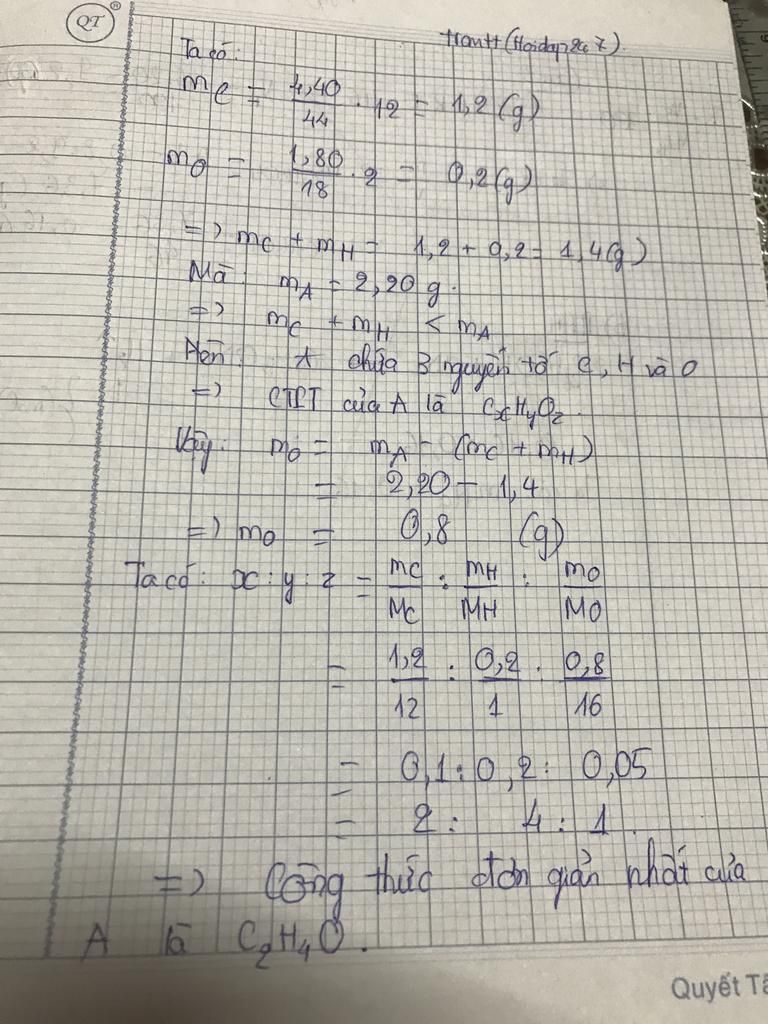 QT
Ta có:
mC = 4,40/44 . 12 = 1,2 (g)
mO = 1,80/18 . 2 = 0,2(g)
=> mC + mH = 1,2 + 0,2 = 1,4(g)
Mà: mA = 2,20 g.
=> mC + mH < mA
Nên: A chứa 3 nguyên tố C, H và O
=> CTPT của A là CxHyOz.
Vậy: mO = mA - (mC + mH)
= 2,20 - 1,4
=> mO = 0,8 (g)
Ta có: x : y : z = mC/MC : mH/MH : mO/MO
= 1,2/12 : 0,2/1 : 0,8/16
= 0,1 : 0,2 : 0,05
= 2 : 4 : 1
=> Công thức đơn giản nhất của
A là C2H4O.
Quyết